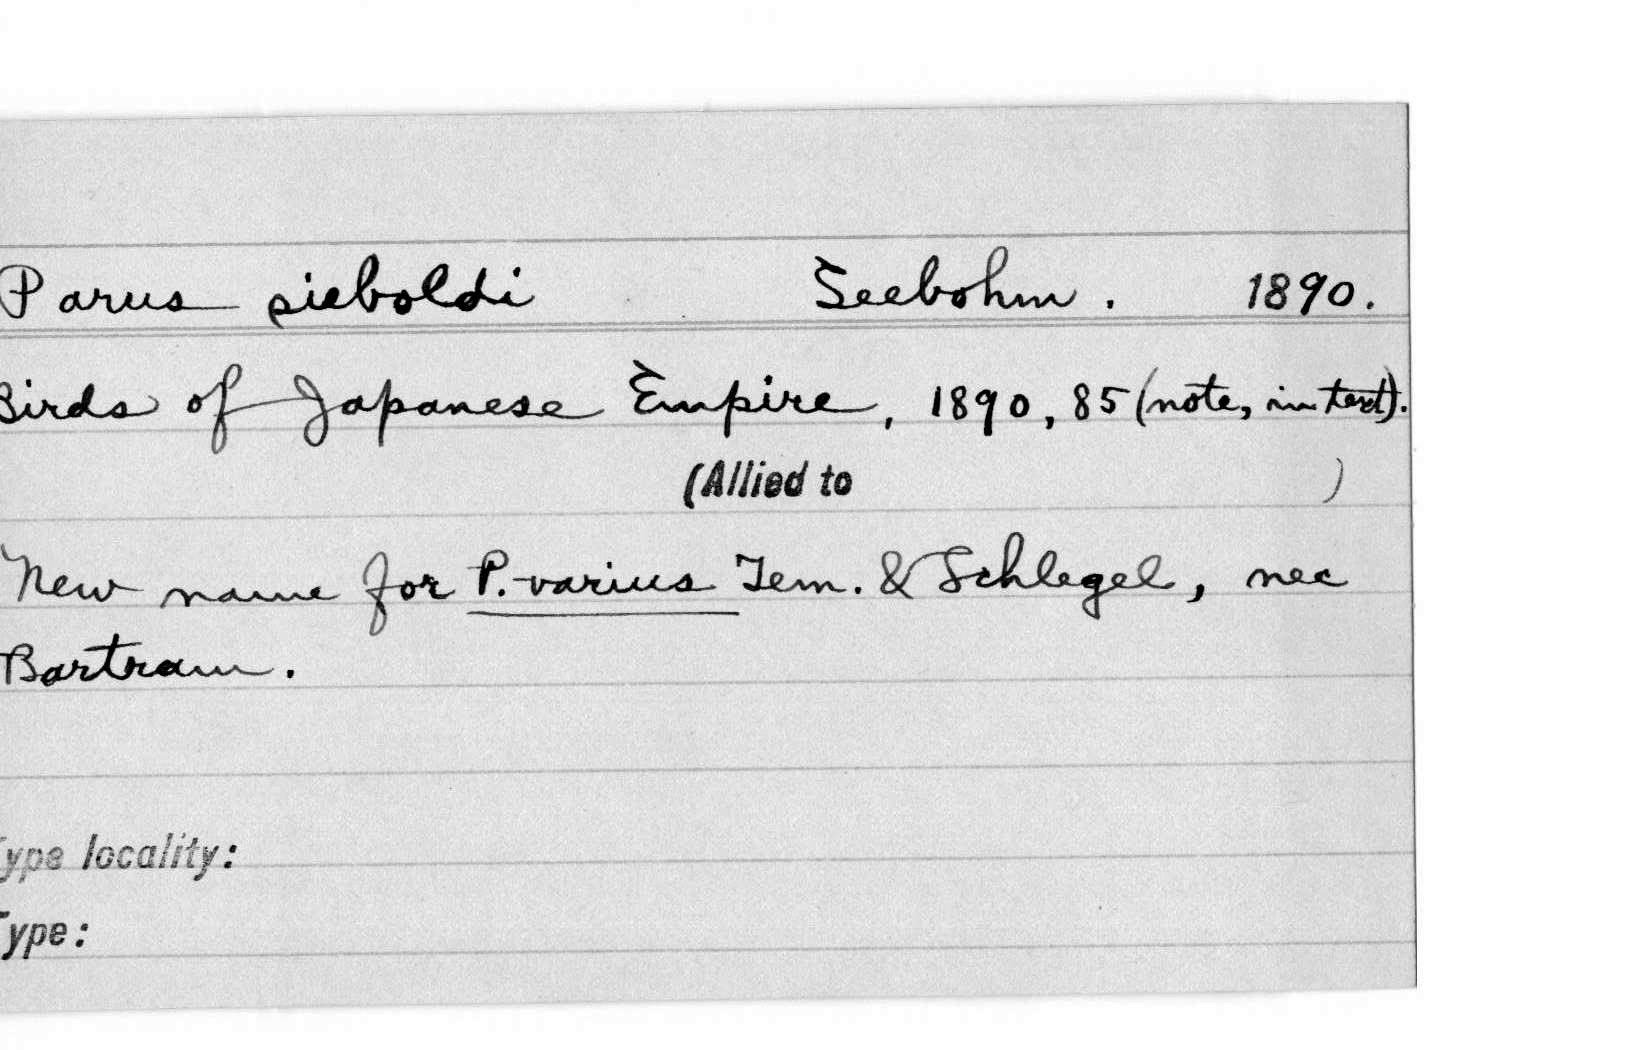 Parus sieboldi Seebohm. 1890.
Birds of Japanese Empire, 1890, 85 (note, in text).
(Allied to )
New name for P. varius Tem. & Schlegel, nec
Bartram.
Type locality:
Type: